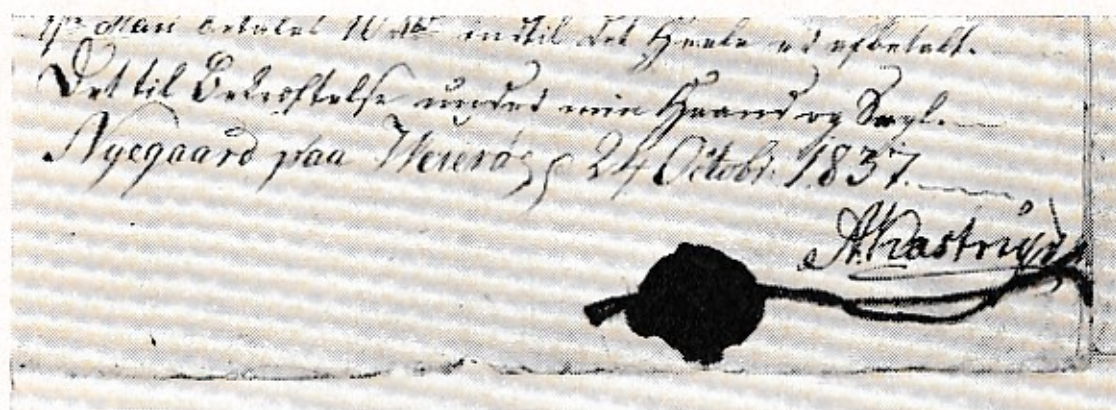 Maii betales 10 indtil det Heele er afbetalt.
Det til Bekræftelse under min Haand og Segl.
Nyegaard paa 24 Octobr. 1837.
A. Kastrup